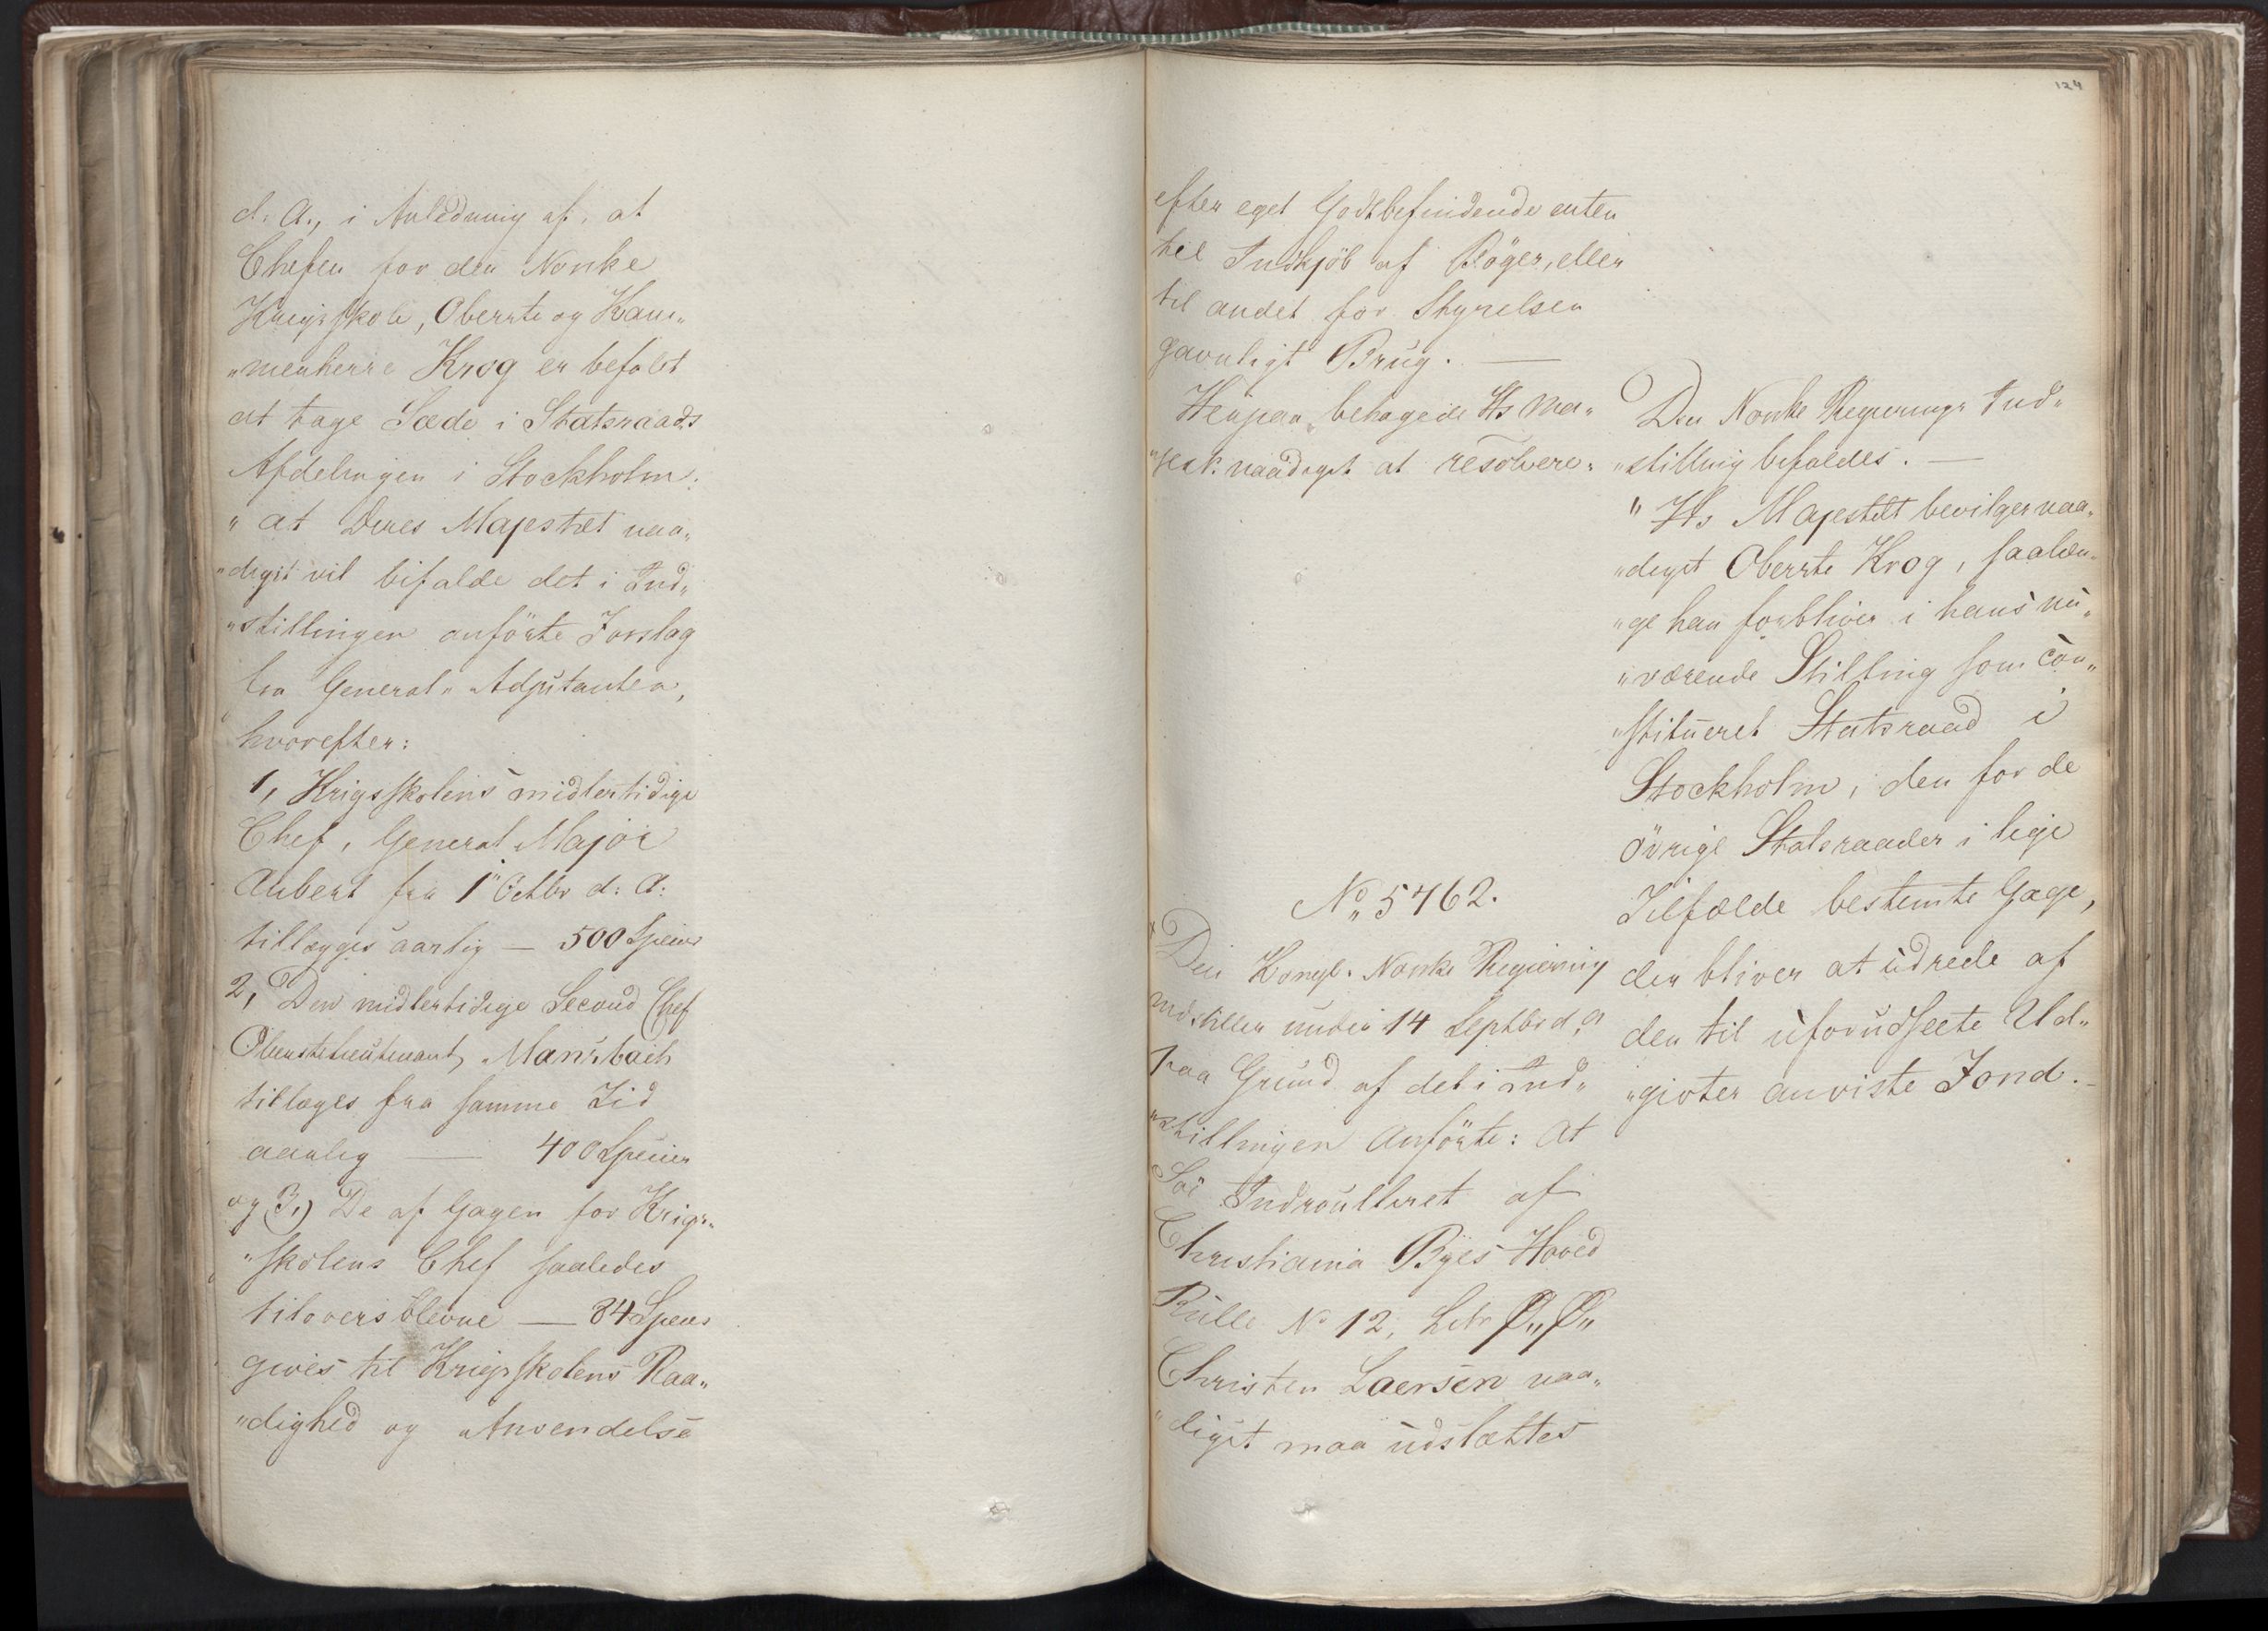 d: A., i Anledning af, at
Chefen for den Norske
Krigsskole, Oberste og Kam„
„merherre Krog er befalet
at tage Sæde i Statsraads
Afdelingen i Stockholm:
„at Deres Majestæt naa„
„digst vil bifalde det i Ind„
„stillingen anförte Forslag
fra General„Adjutanten,
hvorefter:
1, Krigsskolens midlertidige
Chef, General Major
Aubert fra 1" Octbr d: A:
tillægges aarlig — 500 Specier
2, Den midlertidige Second Chef
Oberstelieutenant Mansbach
tillæges fra samme Tid
aarlig — 400 Specier
og 3,) De af Gagen for Krigs„
„skolens Chef saaledes
tiloversblevne — 84 Specier
gives til Krigsskolens Raa„
„dighed og Anvendelse
124
efter eget Godtbefindende enten
til Indkjöb af Böger, eller
til andet for Styrelsen
gavnligt Brug. —
Herpaa behagede Hs Ma„
„jest: naadigst at resolvere:
No 5762.
Den Kongl. Norske Regiering
indstiller under 14 Septbr d. A
paa Grund af det i Ind„
„stillingen Anförte: At
Söe Indroulleret af
Christiania Byes Hoved
Rulle No 12, Litr Ø„Ø„
Christen Laersen naa„
„digst maa udslættes
Den Norske Regierings Ind„
„stilling bifaldes. —
"Hs Majestæt bevilger naa„
„digst Oberste Krog, saalæn„
„ge han forbliver i hans nu„
„værende Stilling som con„
„stitueret Statsraad i
Stockholm, den for de
övrige Statsraader i lige
Tilfælde bestemte Gage,
der bliver at udrede af
den til uforudseete Ud„
„givter anviste Fond. —